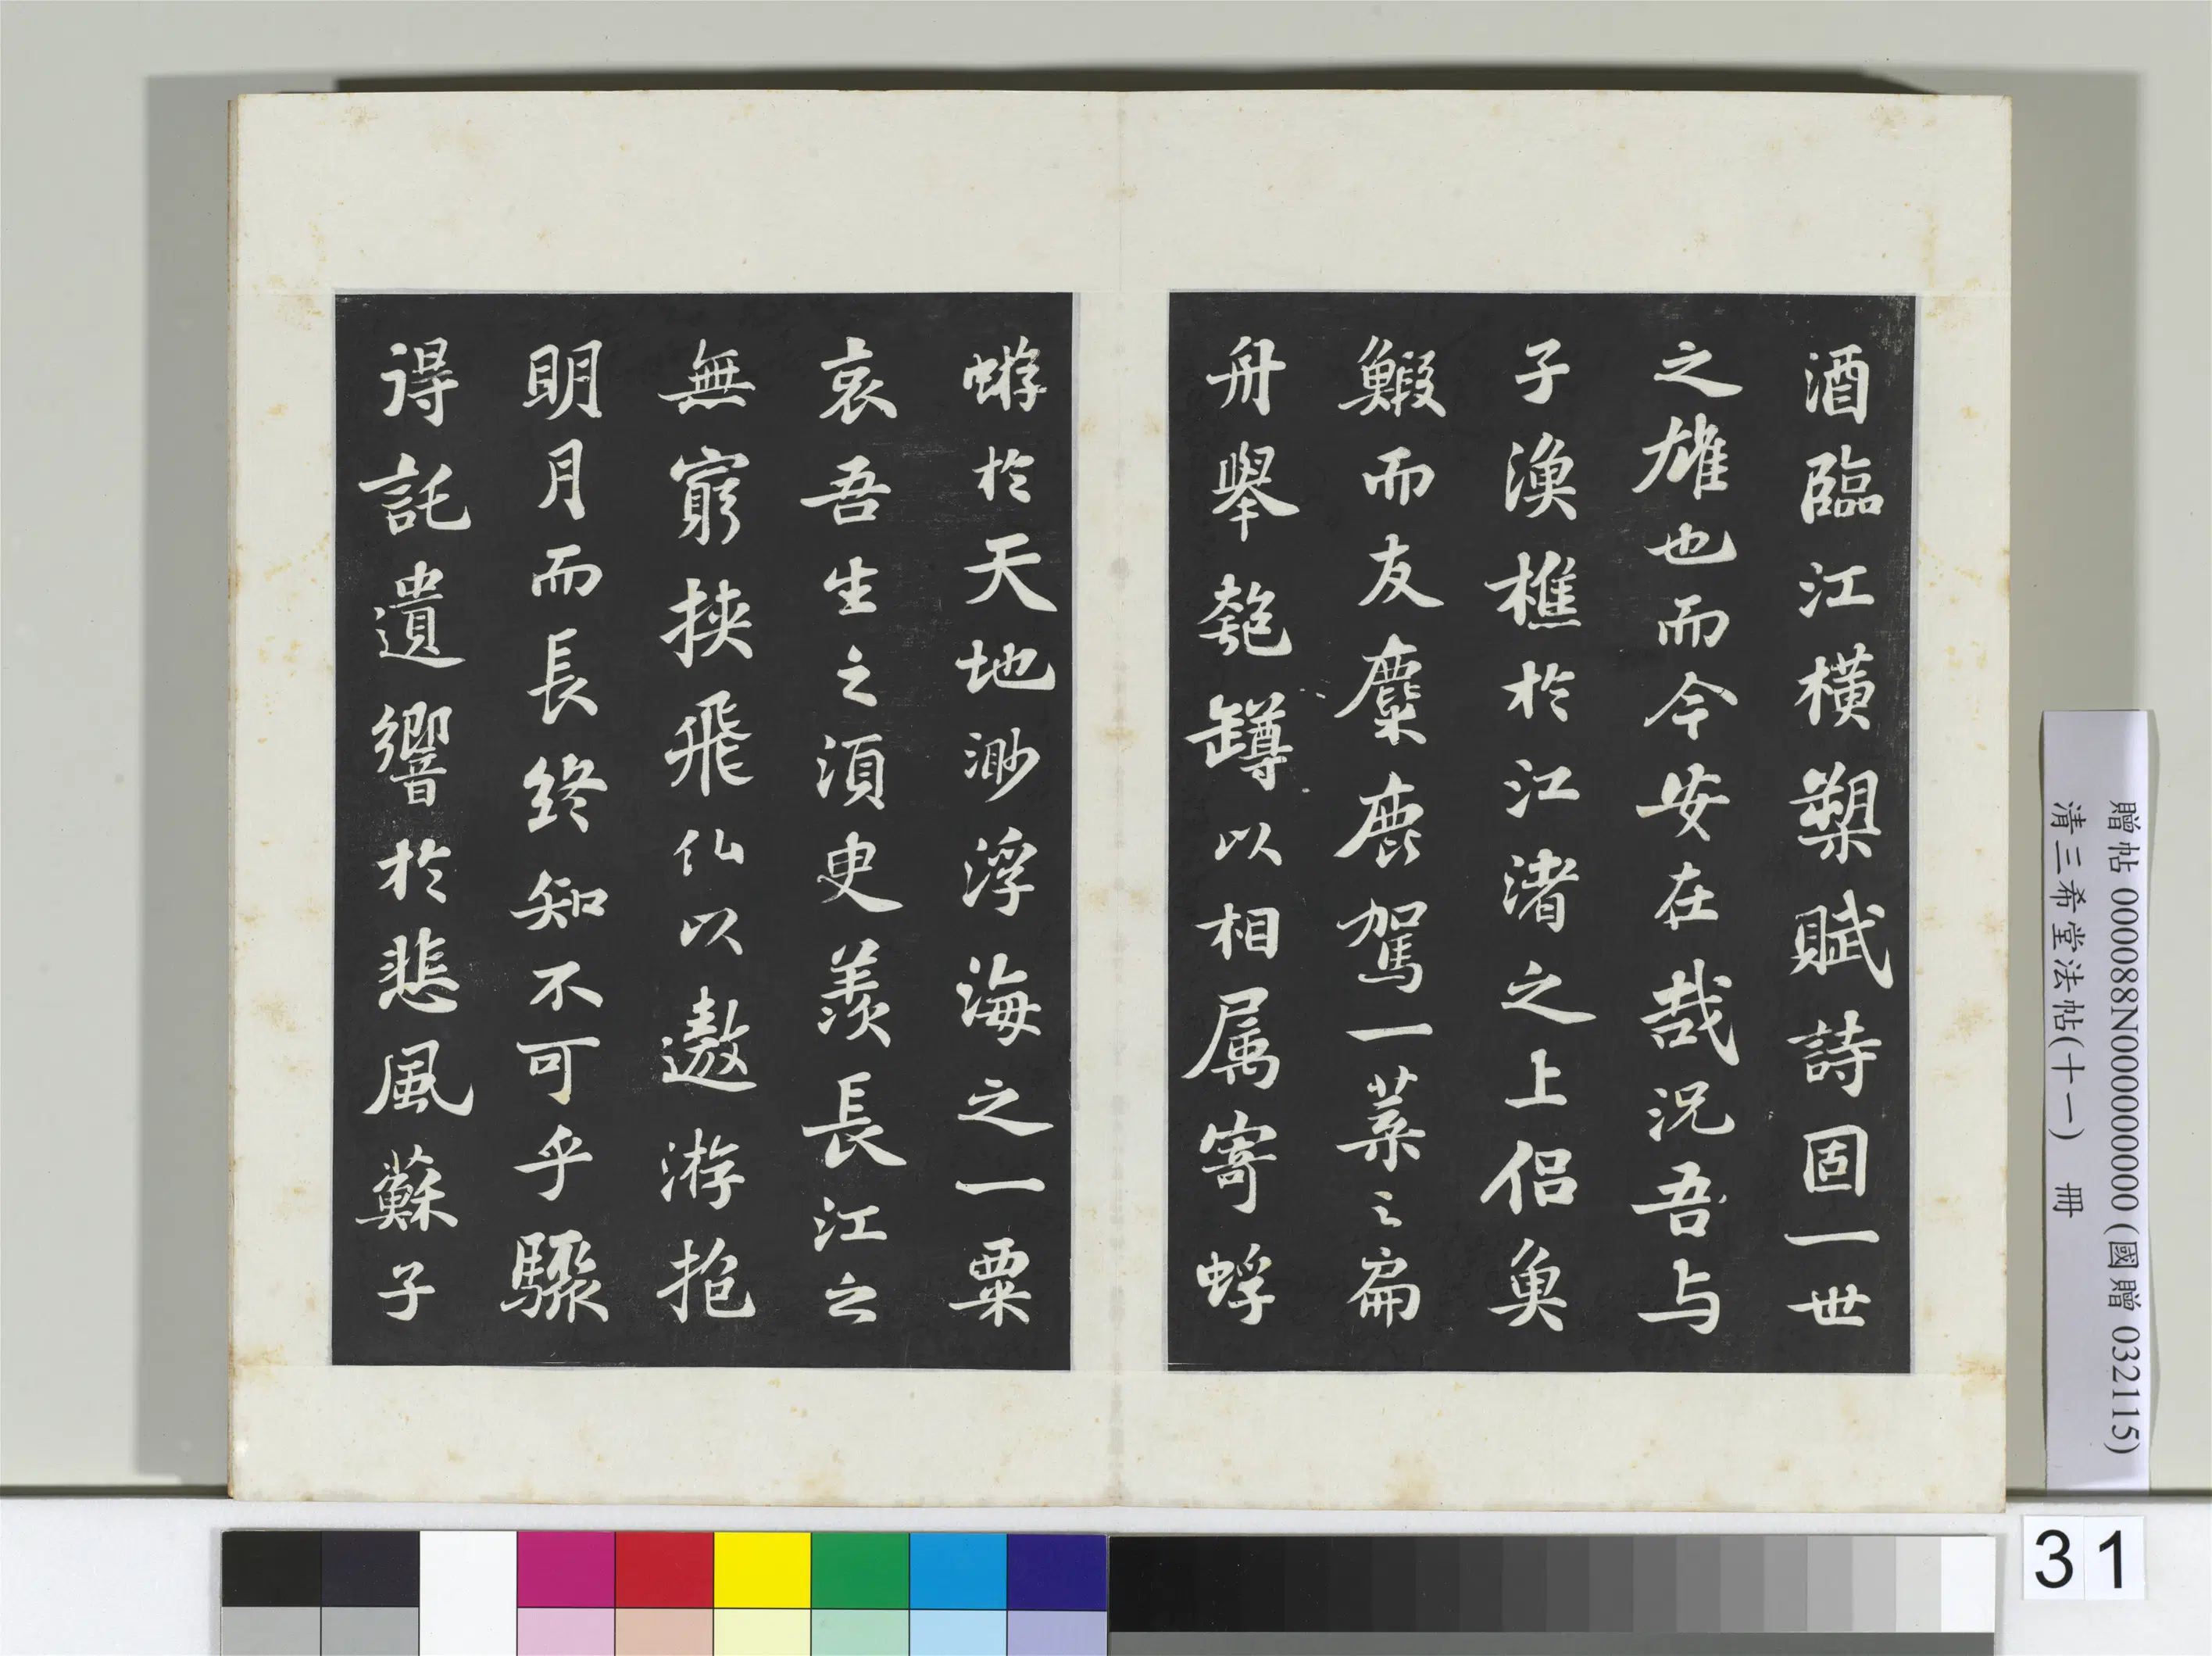 酒臨江橫槊賦詩固一世
之雄也而今安在哉況吾与
子漁樵於江渚之上侶魚
鰕而友麋鹿駕一葉之扁
舟舉匏罇以相属寄蜉
蝣於天地渺浮海之一粟
哀吾生之須臾羨長江之
無窮挟飛仙以遨游抱
明月而長終知不可乎驟
得託遺響於悲風蘇子
贈帖 000088N000000000 (國贈 032115)
清三希堂法帖(十一) 冊
31